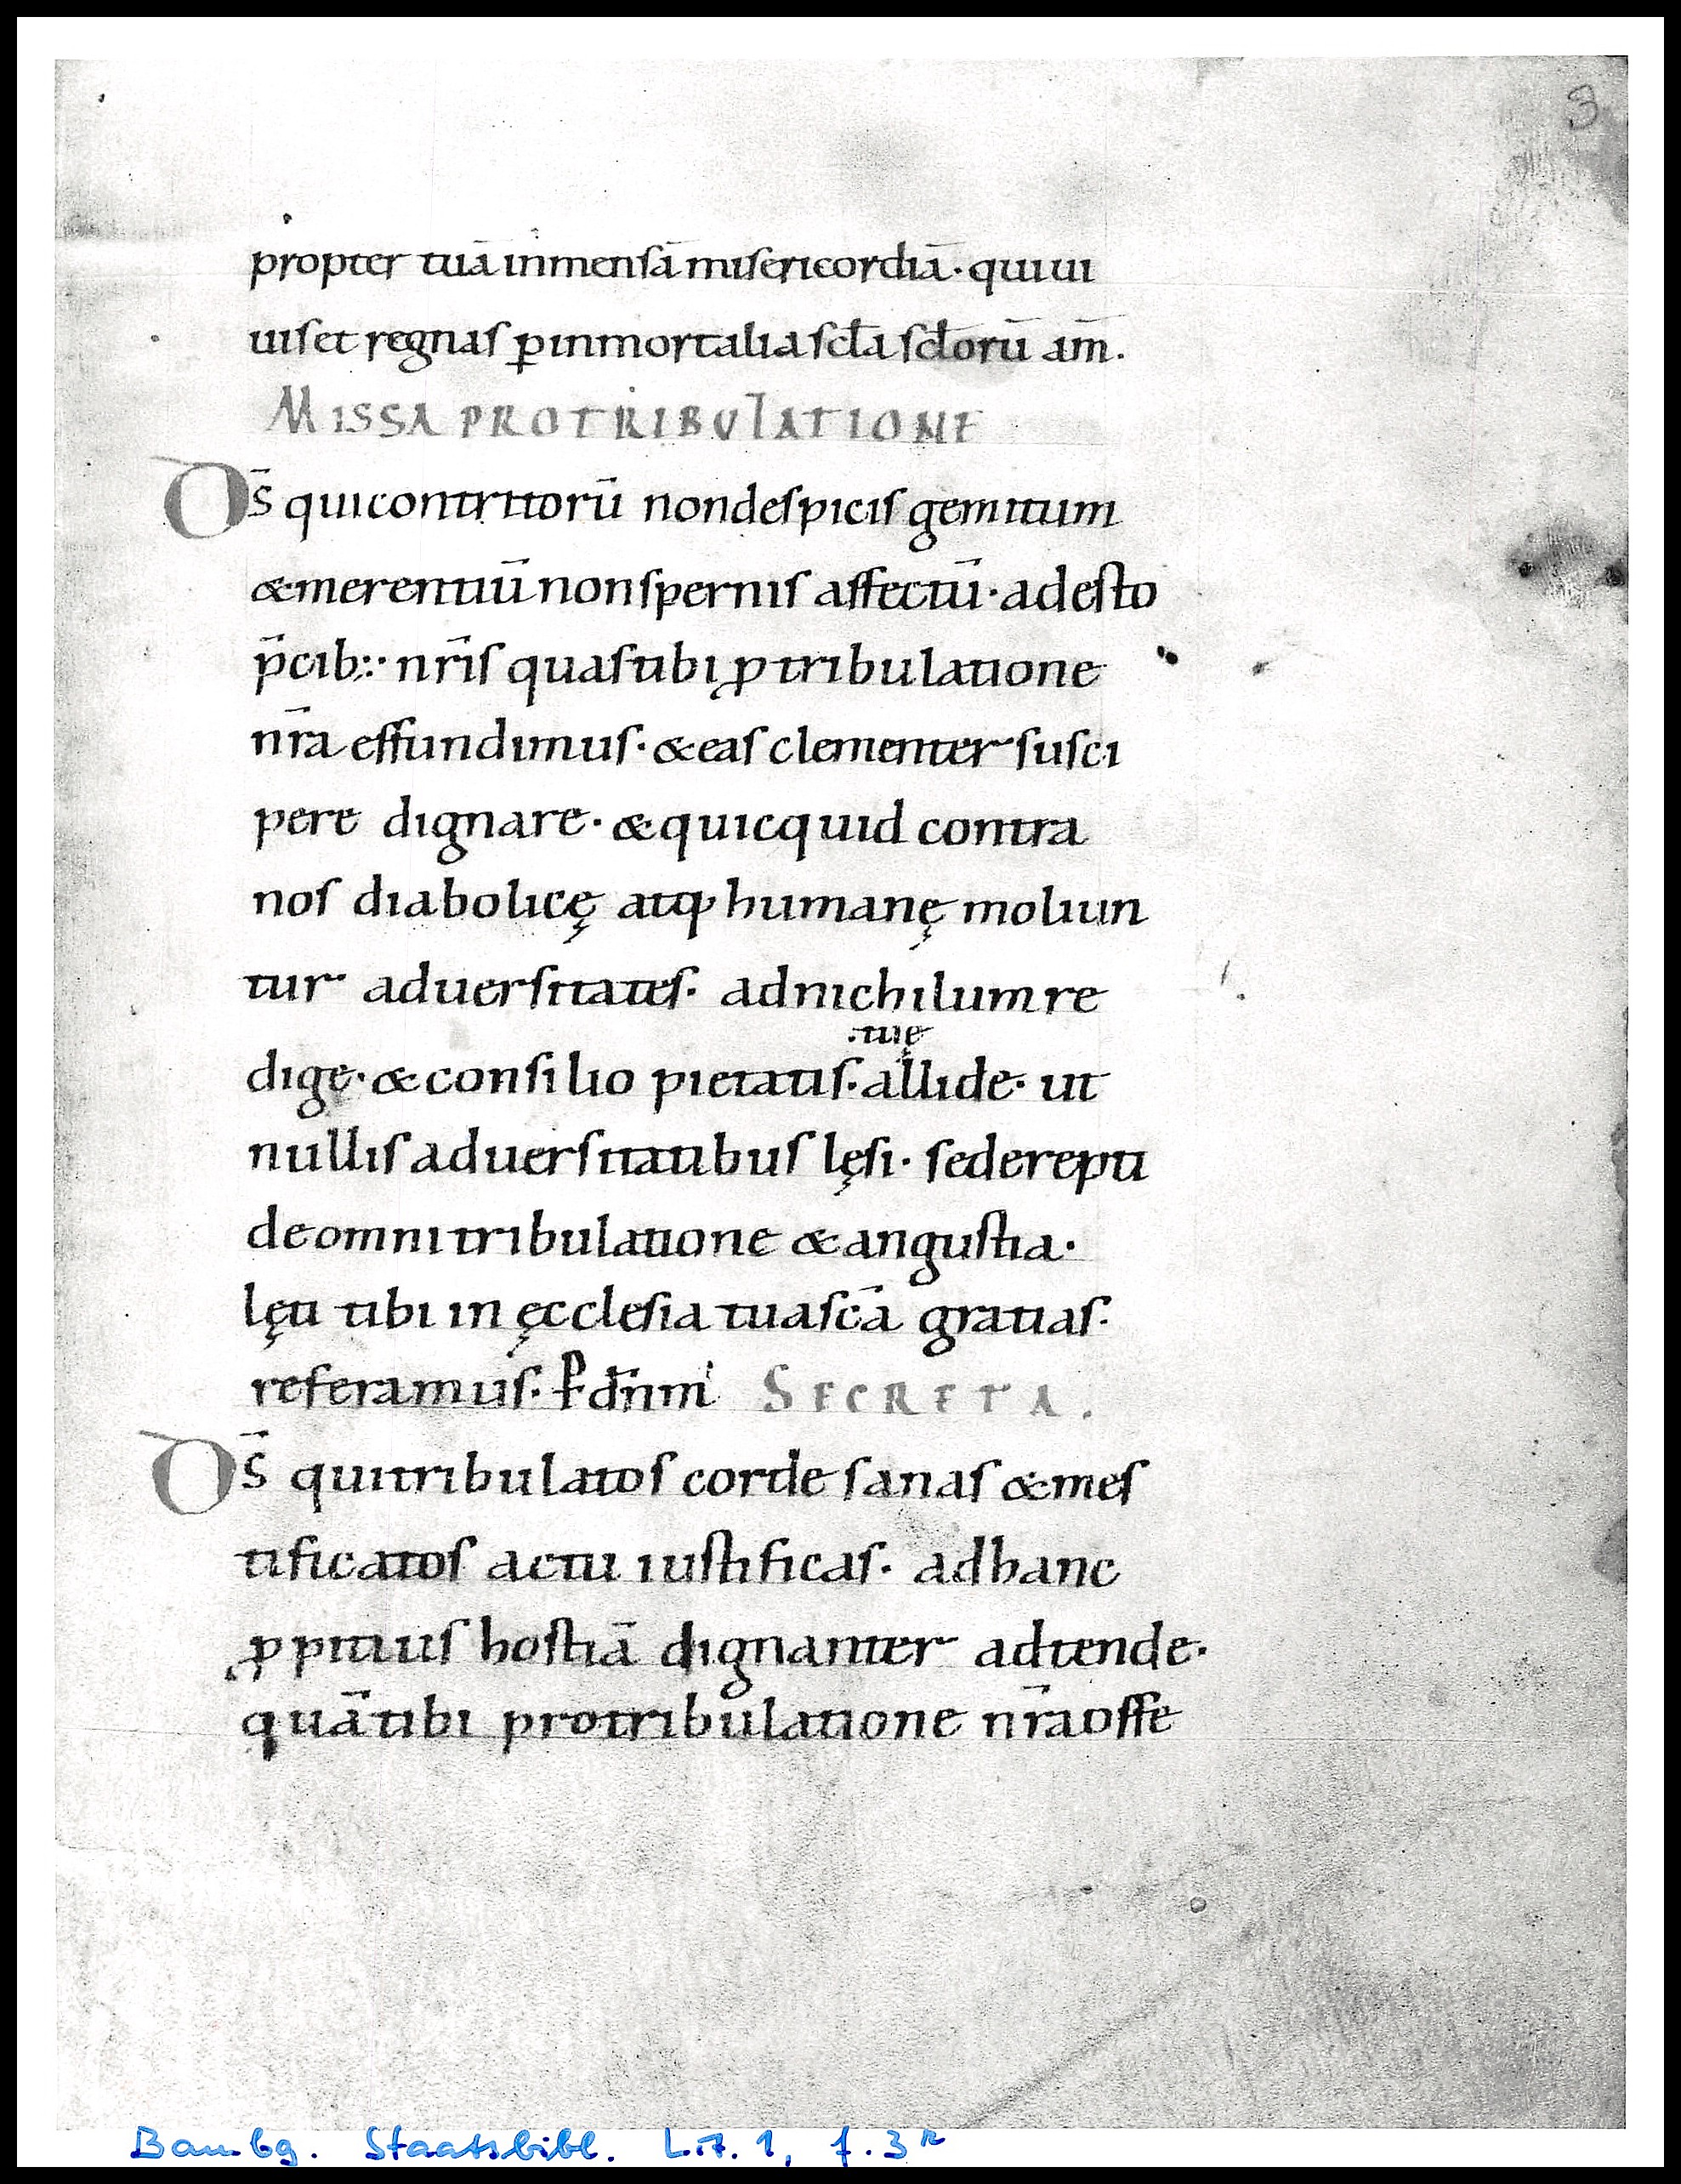 3
propter tuā inmensā misericordiā · qui ui
uis et regnas ꝑ inmortalia scła scłorū am̄.
MISSA PRO TRIBULATIONE
Ds̄ qui contritorū non despicis gemitum
& merentiū non spernis affectū · adesto
p̄cib;: · nr̄is quas tibi ꝓ tribulatione
nr̄a effundimus · & eas clementer susci
pere dignare · & quicquid contra
nos diabolicę atq; humanę moliun
tur aduersitates · ad nichilum re
.tuę
dige · & consilio pietatis · allide · ut
nullis aduersitatibus lęsi · sed erepti
de omni tribulatione & angustia ·
lęti tibi in ęcclesia tua sc̄a gratias ·
referamus · P dn̄m SECRETA.
Ds̄ qui tribulatos corde sanas & mes
tificatos actu iustificas · ad hanc
ꝓpitius hostiā dignanter adtende ·
quā tibi pro tribulatione nr̄a offe
Bambg. Staatsbibl. Lit. 1, f. 3r